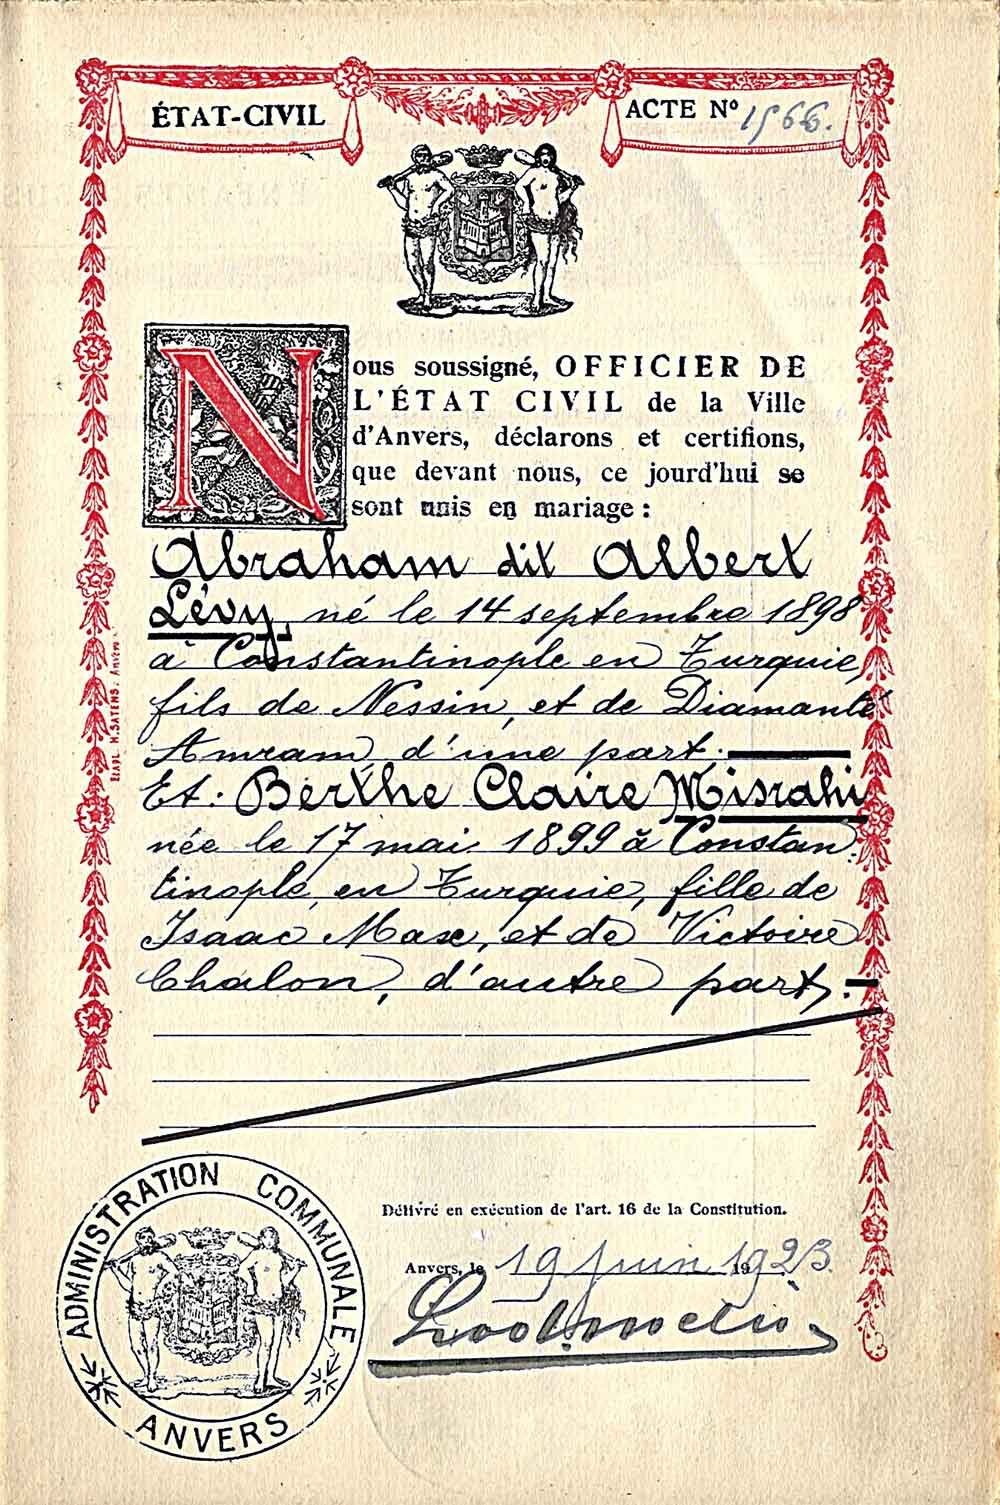 ÉTAT-CIVIL
ACTE N° 1566.
Nous soussigné, OFFICIER DE
L'ÉTAT CIVIL de la Ville
d'Anvers, déclarons et certifions,
que devant nous, ce jourd'hui se
sont unis en mariage :
Abraham dit Albert
Lévy, né le 14 septembre 1898
à Constantinople en Turquie,
fils de Nessin, et de Diamanté
Amram, d'une part.
Et: Berthe Claire Misrahi
née le 17 mai 1899 à Constan
tinople, en Turquie, fille de
Isaac Max, et de Victoire
Chalon, d'autre part.
ÉTABL. H. SATENS. ANVERS
Délivré en exécution de l'art. 16 de la Constitution.
Anvers, le 19 juin 1923.
ADMINISTRATION COMMUNALE
ANVERS